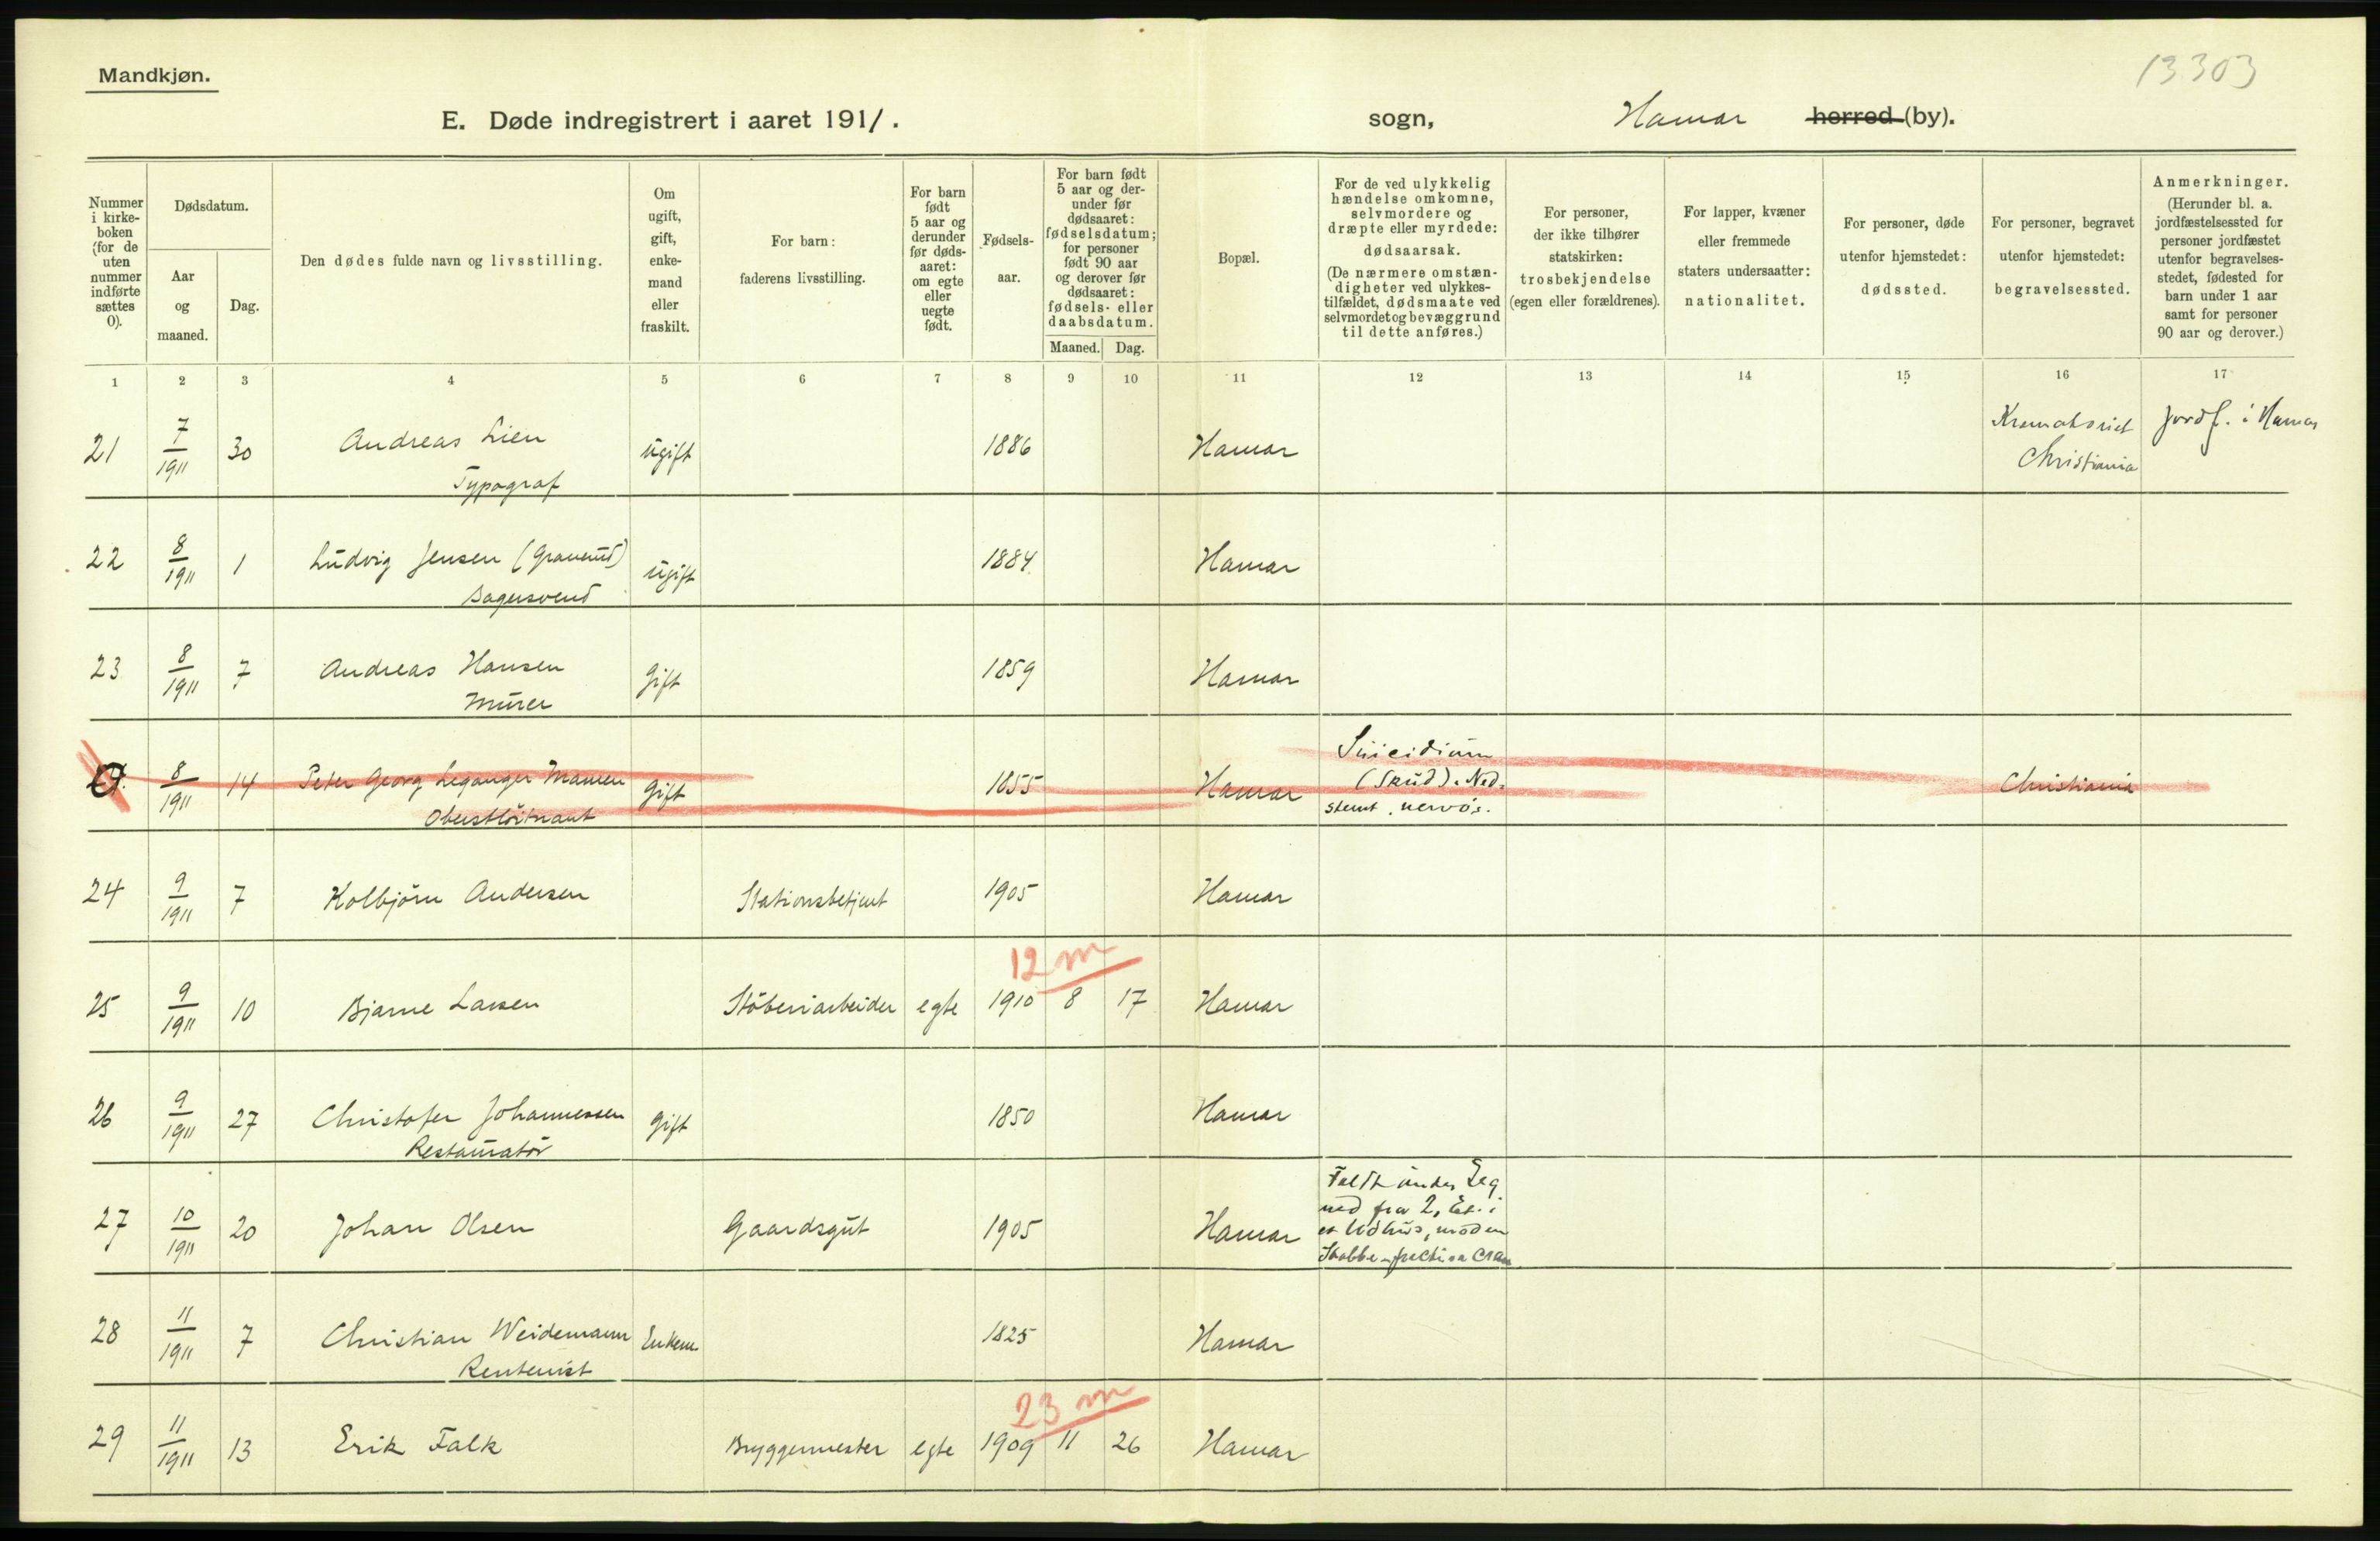 13303
Mandkjøn.
E. Døde indregistrert i aaret 1911. sogn, Hamar herred (by).
Nummer i kirkeboken (for de uten nummer indførte sættes 0).
Dødsdatum.
Aar og maaned.
Dag.
Den dødes fulde navn og livsstilling.
Om ugift, gift, enkemand eller fraskilt.
For barn: faderens livsstilling.
For barn født 5 aar og derunder før dødsaaret: om egte eller uegte født.
Fødselsaar.
For barn født 5 aar og derunder før dødsaaret: fødselsdatum; for personer født 90 aar og derover før dødsaaret: fødsels- eller daabsdatum.
Maaned. Dag.
Bopæl.
For de ved ulykkelig hændelse omkomne, selvmordere og dræpte eller myrdede: dødsaarsak. (De nærmere omstændigheter ved ulykkestilfældet, dødsmaate ved selvmordet og bevæggrund til dette anføres.)
For personer, der ikke tilhører statskirken: trosbekjendelse (egen eller forældrenes).
For lapper, kvæner eller fremmede staters undersaatter: nationalitet.
For personer, døde utenfor hjemstedet: dødssted.
For personer, begravet utenfor hjemstedet: begravelsessted.
Anmerkninger. (Herunder bl. a. jordfæstelsessted for personer jordfæstet utenfor begravelsesstedet, fødested for barn under 1 aar samt for personer 90 aar og derover.)
1 2 3 4 5 6 7 8 9 10 11 12 13 14 15 16 17
21 7/1911 30 Andreas Lien ugift 1886 Hamar Krematoriet jordf. i Hamar
Typograf Christiania
22 8/1911 1 Ludvig Jensen (Graverud) ugift 1884 Hamar
Bagersvend
23 8/1911 7 Andreas Hansen Gift 1859 Hamar
Murer
Suicidium
8/1911 14 Peter Georg Leganger Mamen Gift 1855 Hamar (Skud). Ned- Christiania
Oberstløitnant stemt, nervøs.
24 9/1911 7 Kolbjørn Andersen Stationsbetjent 1905 Hamar
12 m
25 9/1911 10 Bjarne Larsen Støberiarbeider egte 1910 8 17 Hamar
26 9/1911 27 Christofer Johannessen Gift 1850 Hamar
Restauratør
Faldt under Leg
ned fra 2. Et. i
27 10/1911 20 Johan Olsen Gaardsgut 1905 Hamar et Udhus, mod en
Stabbe
28 11/1911 7 Christian Weidemann Enkem 1825 Hamar
Rentenist
23 m
29 11/1911 13 Erik Falk Bryggermester egte 1909 11 26 Hamar